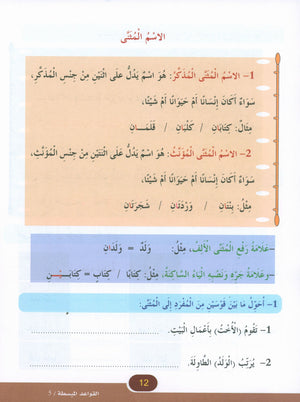 الاسْمُ الْمُثَنَّى
1- الاسْمُ الْمُثَنَّى الْمُذَكَّرُ: هُوَ اسْمٌ يَدُلُّ عَلَى اثْنَيْنِ مِنْ جِنْسِ الْمُذَكَّرِ،
سَوَاءٌ أَكَانَ إِنْسَانًا أَمْ حَيَوَانًا أَمْ شَيْئًا،
مِثْلُ: كِتَابَانِ / كَلْبَانِ / قَلَمَـانِ
2- الاسْمُ الْمُثَنَّى الْمُؤَنَّثُ: هُوَ اسْمٌ يَدُلُّ عَلَى اثْنَتَيْنِ مِنْ جِنْسِ الْمُؤَنَّثِ،
سَوَاءٌ أَكَانَ إِنْسَانًا أَمْ حَيَوَانًا أَمْ شَيْئًا،
مِثْلُ: بِنْتَانِ / وَرْدَتَانِ / شَجَرَتَانِ
-عَلَامَةُ رَفْعِ الْمُثَنَّى الْأَلِفُ، مِثْلُ: وَلَدٌ = وَلَدَانِ
-وَعَلَامَةُ جَرِّهِ وَنَصْبِهِ الْيَاءُ السَّاكِنَةُ، مِثْلُ: كِتَابًا / كِتَابٍ = كِتَابَـيْـنِ
1- أُحَوِّلُ مَا بَيْنَ قَوْسَيْنِ مِنَ الْمُفْرَدِ إِلَى الْمُثَنَّى:
1- تَقُومُ (الْأُخْتُ) بِأَعْمَالِ الْبَيْتِ.
2- يُرَتِّبُ (الْوَلَدُ) الطَّاوِلَةَ.
12
القواعد المبسطة / 5